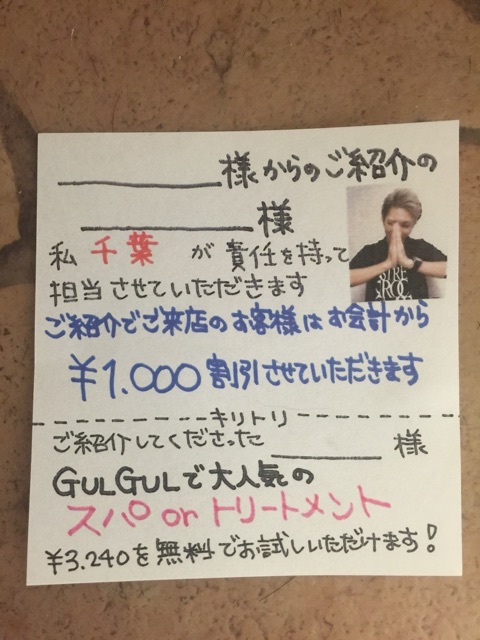 様からのご紹介の
様
私 千葉 が 責任を持って
担当させていただきます
ご紹介でご来店のお客様はお会計から
¥1.000割引させていただきます
キリトリ
ご紹介してくださった 様
GULGULで大人気の
スパ or トリートメント
¥3.240を無料でお試しいただけます!